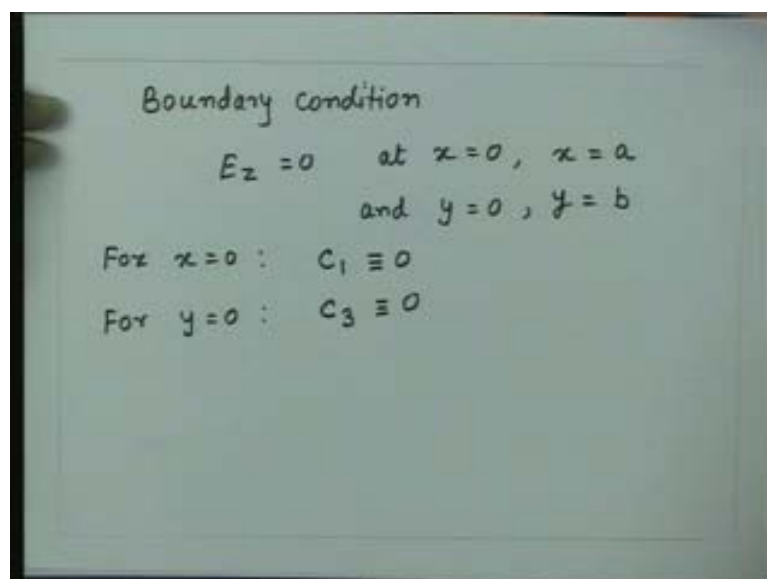 Boundary condition
Ez = 0 at x = 0, x = a
and y = 0, y = b
For x = 0 : C1 ≡ 0
For y = 0 : C3 ≡ 0